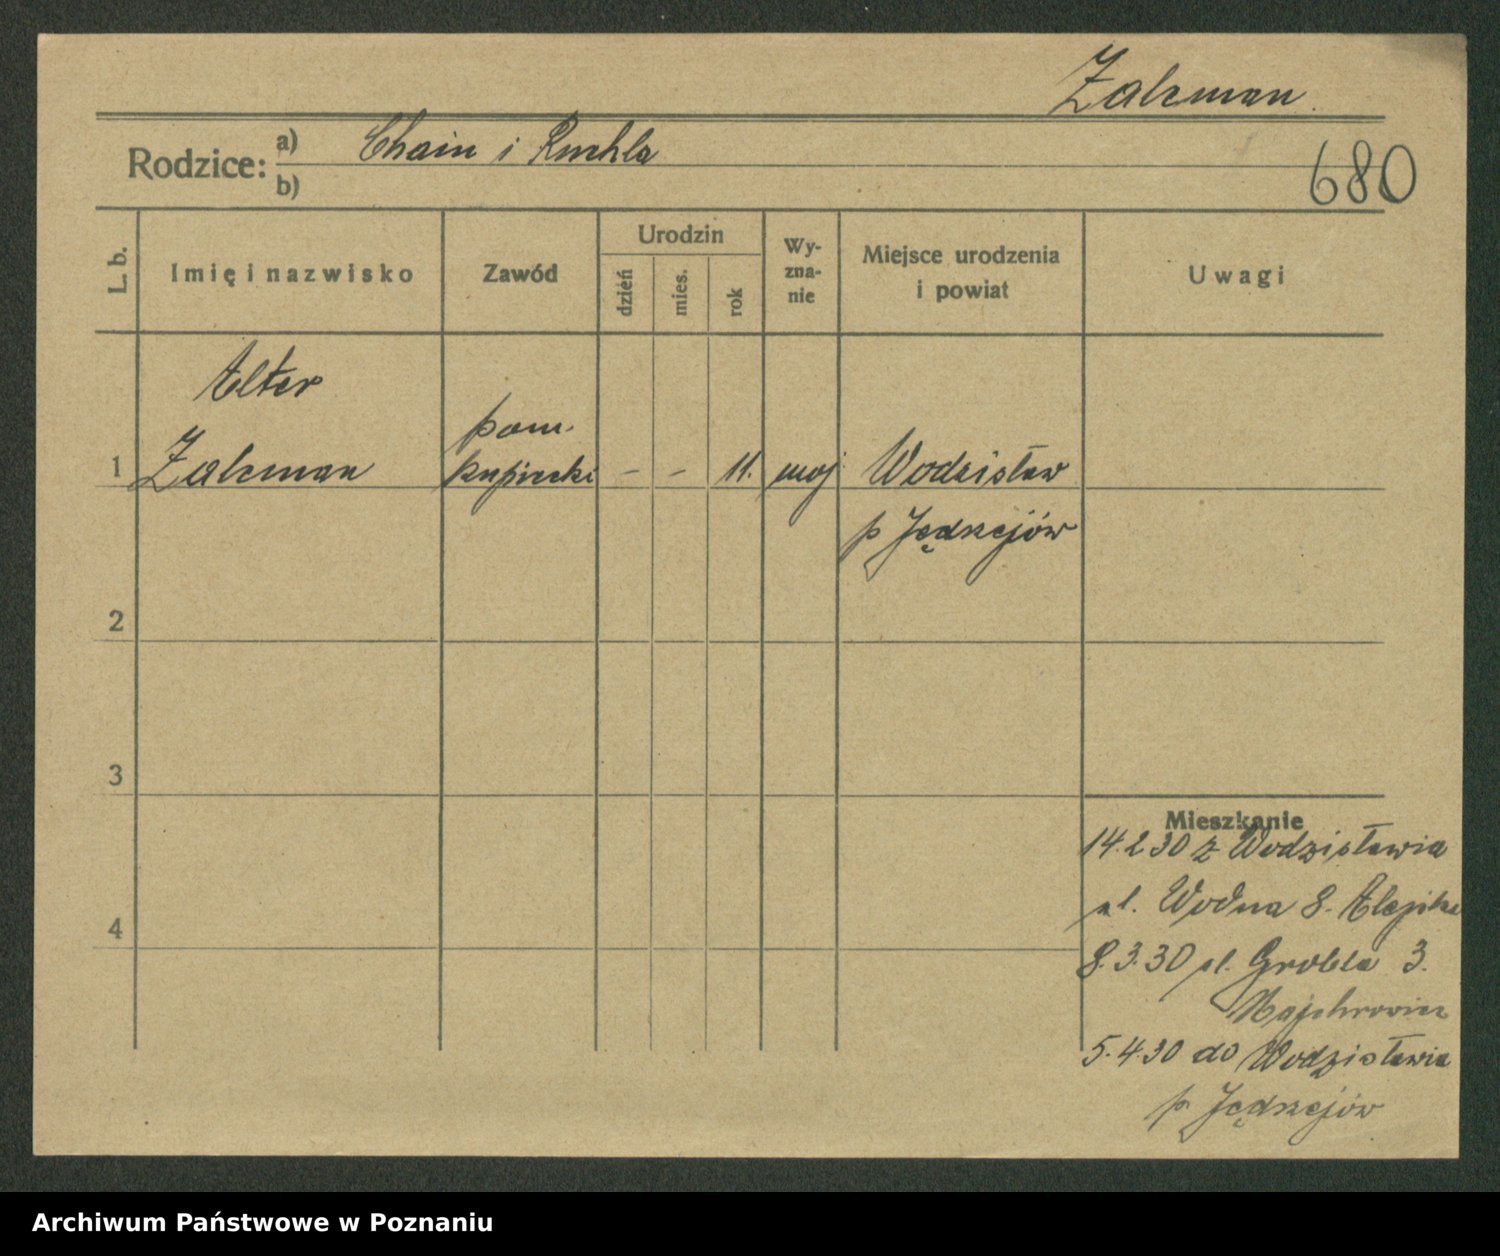 Zalcman
Rodzice: a) Chaim i Ruchla
680
b)
L. b.
Imię i nazwisko
Zawód
Urodzin
dzień
mies.
rok
Wy-
zna-
nie
Miejsce urodzenia
i powiat
Uwagi
Alter
1 Zalcman
pom.
kupiecki
- - 11. moj
Wodzisław
p Jędrzejów
2
3
4
Mieszkanie
14.2 30 z Wodzisławia
ul. Wodna 8.
8.3.30 ul. Grobla 3.
Majchrowicz
5.4.30 do Wodzisławia
p. Jędrzejów
Archiwum Państwowe w Poznaniu